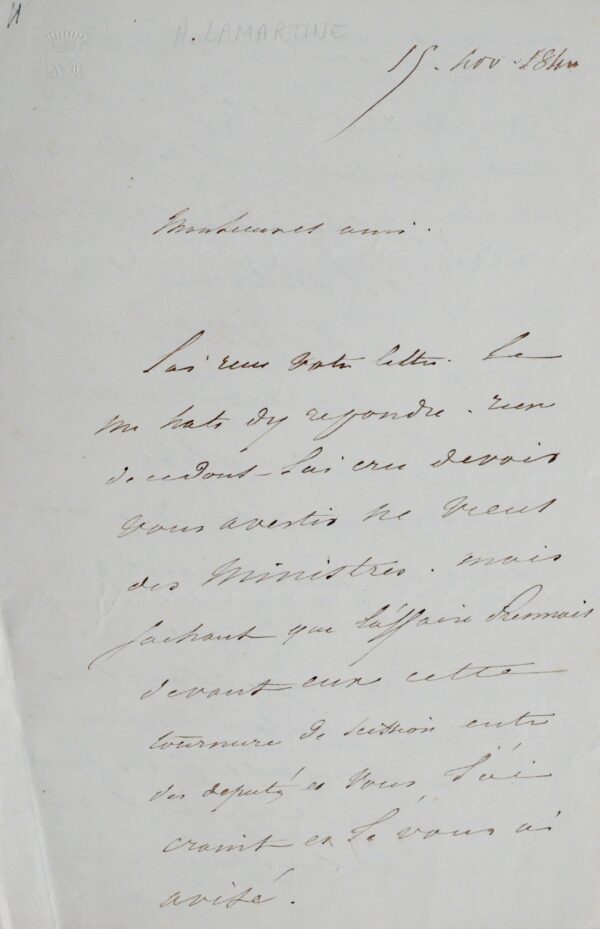 A. LAMARTINE
15. nov. 184
Monsieur et ami.
J'ai reçu votre lettre. Je
me hate d'y repondre. rien
de ce dont J'ai cru devoir
vous avertir ne vient
des Ministres. mais
sachant que l'affaire prennait
devant eux cette
tournure de scission entre
des deputés et vous J'ai
craint et Je vous ai
avisé.